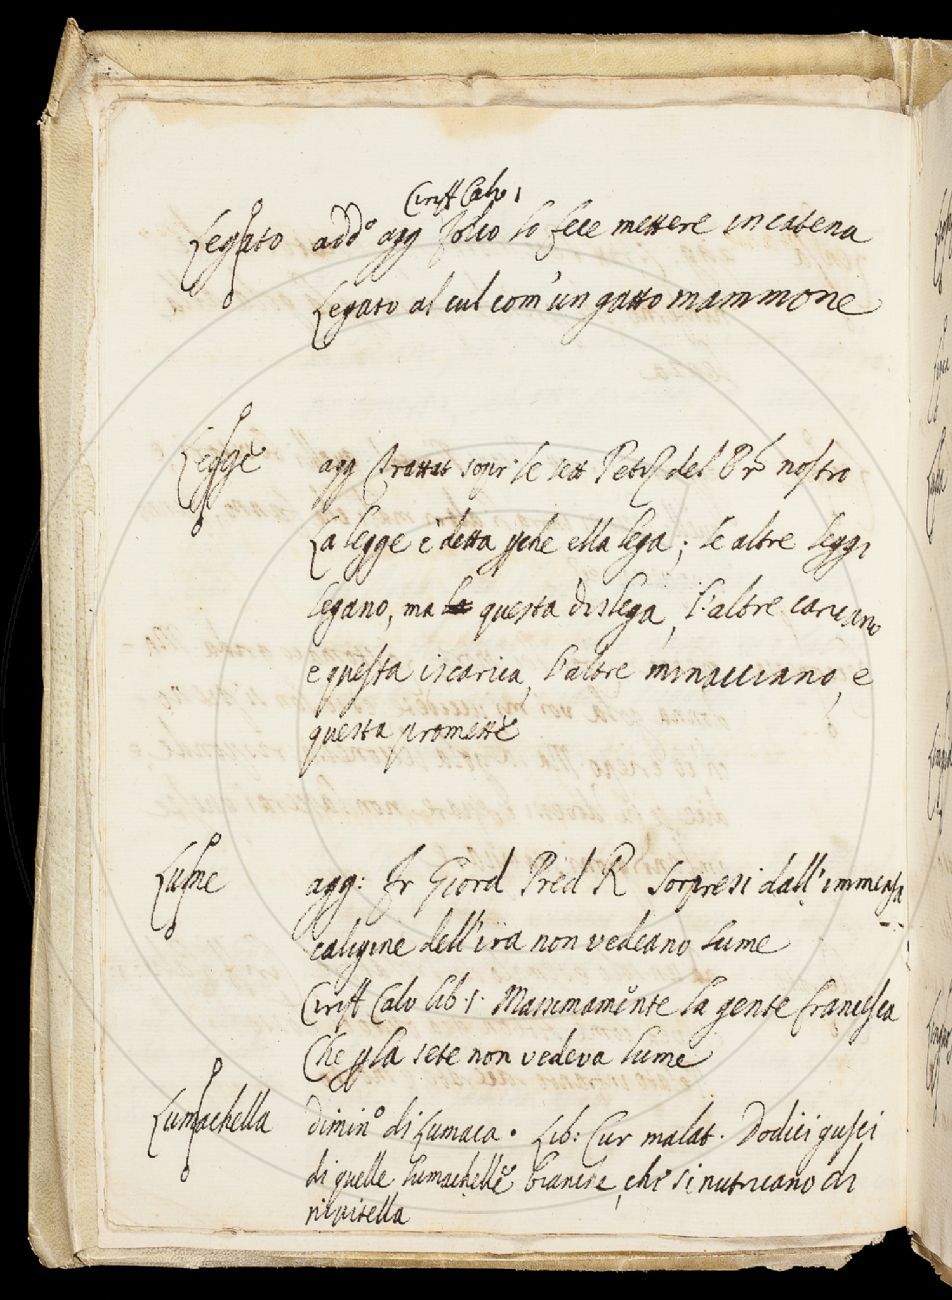 Ciriff Calv 1
Legato add.o agg Folco lo fece mettere in catena
Legato al cul com' un gatto mammone
Legge agg Trattat sopr: le sett Petiz del Pr nostro
La legge è detta pche ella lega; le altre leggi
legano, ma questa dislega, l'altre caricano
e questa iscarica, l'altre minacciano, e
questa promette
Lume agg: Fr Giord Pred R Sorpresi dall'immensa
caligine dell'ira non vedeano lume
Ciriff Calv lib: 1: Massimamente la gente francesca
Che p la sete non vedeva lume
Lumachella Dimin.o di Lumaca. Lib: Cur malat. Dodici gusci
di quelle lumachelle bianche, che si nutricano di
nipitella